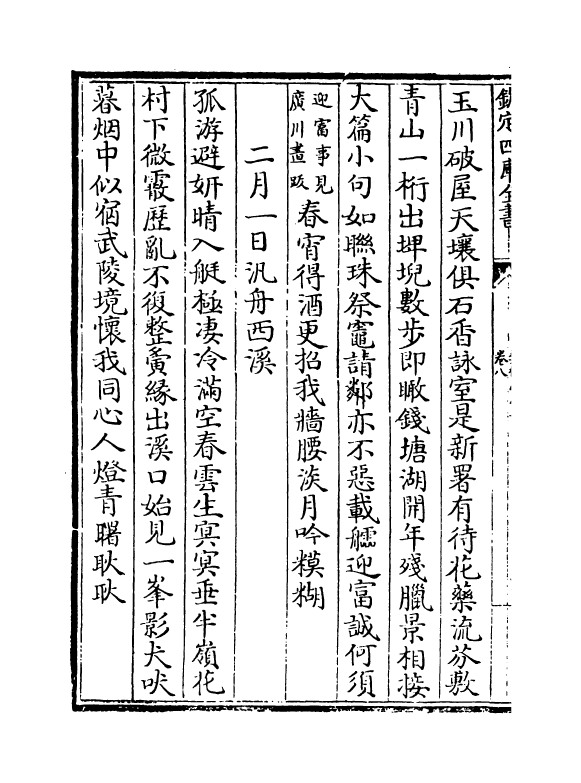 欽定四庫全書
卷八
玉川破屋天壤俱石香詠室是新署有待花藥流芬敷
青山一桁出埤堄數步即瞰錢塘湖開年殘臘景相接
大篇小句如聯珠祭竈請鄰亦不惡載艣迎富誠何須
迎富事見
廣川畫跋
春宵得酒更招我牆腰淡月吟糢糊
二月一日汎舟西溪
孤游避妍晴入艇極凄冷滿空春雲生冥冥垂半嶺花
村下微霰歷亂不復整夤緣出溪口始見一峯影犬吠
暮烟中似宿武陵境懷我同心人燈青曙耿耿